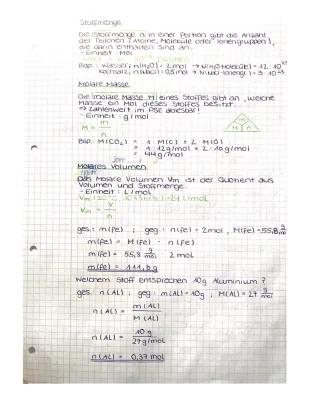 Stoffmenge
Die Stoffmenge n in einer Portion gibt die Anzahl
der Teilchen (Atome, Moleküle oder Ionengruppen),
die darin enthalten sind an.
- Einheit: Mol
Bsp.: Wasser: n(H₂O) = 2mol → N(H₂O-Moleküle) = 12 · 10²³
Kochsalz: n(NaCl) = 0,5 mol → N(NaCl-Ionengr.) = 3 · 10²³
Molare Masse
Die molare Masse M eines Stoffes gibt an, welche
Masse ein Mol dieses Stoffes besitzt.
⇒ Zahlenwert im PSE ablesbar!
- Einheit: g/mol
M = m/n
m
M n
Bsp.: M(CO₂) = 1 M(C) + 2 M(O)
= 1 · 12g/mol + 2 · 16g/mol
= 44g/mol
Molares Volumen
Das Molare Volumen Vm ist der Quotient aus
Volumen und Stoffmenge.
- Einheit: L/mol
Vm = V/n
ges.: m(Fe) ; geg.: n(Fe) = 2mol, M(Fe) = 55,8 g/mol
m(Fe) = M(Fe) · n(Fe)
m(Fe) = 55,8 g/mol · 2mol
m(Fe) = 111,6g
Welchem Stoff entsprechen 10g Aluminium?
ges.: n(Al) ; geg.: m(Al) = 10g, M(Al) = 27 g/mol
n(Al) = m(Al)/M(Al)
n(Al) = 10g/27g/mol
n(Al) = 0,37 mol